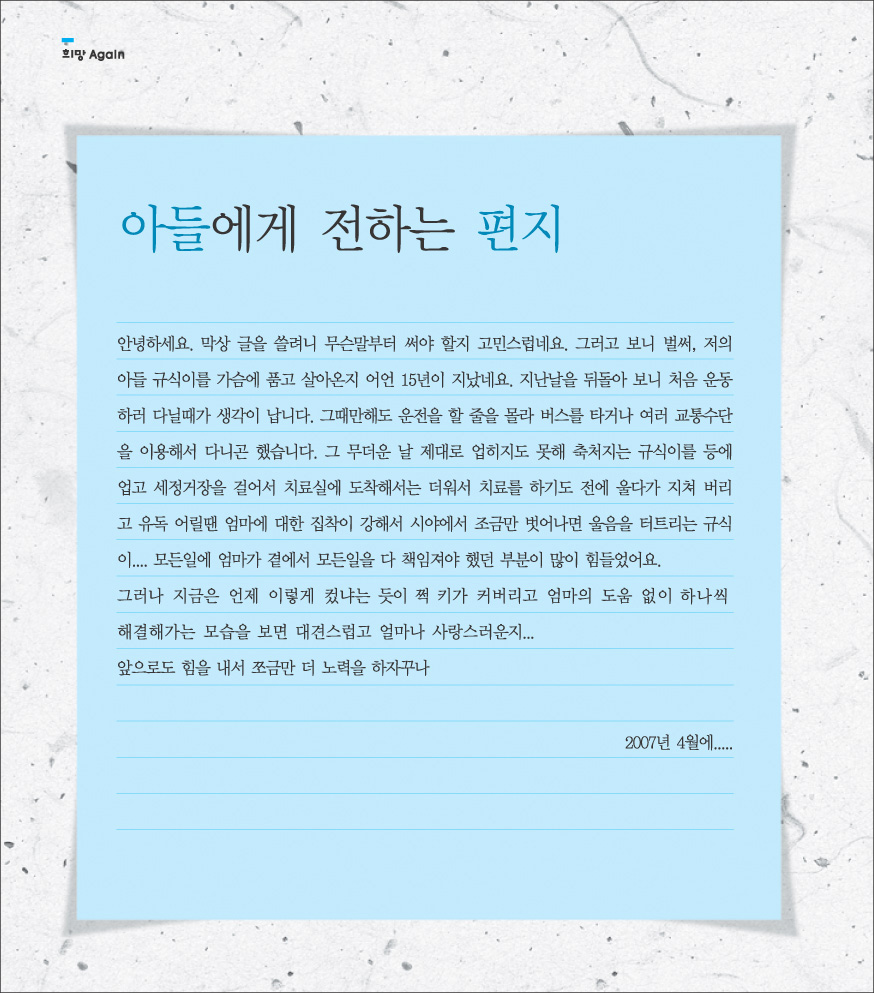 희망 Again
아들에게 전하는 편지
안녕하세요. 막상 글을 쓸려니 무슨말부터 써야 할지 고민스럽네요. 그러고 보니 벌써, 저의
아들 규식이를 가슴에 품고 살아온지 어언 15년이 지났네요. 지난날을 뒤돌아 보니 처음 운동
하러 다닐때가 생각이 납니다. 그때만해도 운전을 할 줄을 몰라 버스를 타거나 여러 교통수단
을 이용해서 다니곤 했습니다. 그 무더운 날 제대로 업히지도 못해 축처지는 규식이를 등에
업고 세정거장을 걸어서 치료실에 도착해서는 더워서 치료를 하기도 전에 울다가 지쳐 버리
고 유독 어릴땐 엄마에 대한 집착이 강해서 시야에서 조금만 벗어나면 울음을 터트리는 규식
이.... 모든일에 엄마가 곁에서 모든일을 다 책임져야 했던 부분이 많이 힘들었어요.
그러나 지금은 언제 이렇게 컸냐는 듯이 쩍 키가 커버리고 엄마의 도움 없이 하나씩
해결해가는 모습을 보면 대견스럽고 얼마나 사랑스러운지...
앞으로도 힘을 내서 쪼금만 더 노력을 하자꾸나
2007년 4월에.....